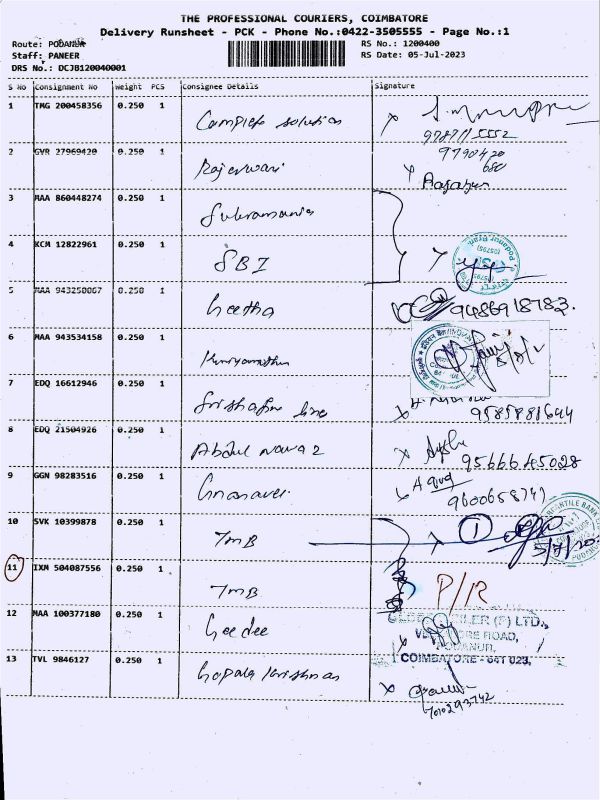 THE PROFESSIONAL COURIERS, COIMBATORE
Delivery Runsheet - PCK - Phone No.:0422-3505555 - Page No.:1
Route: PODANUR
RS No.: 1200400
Staff: PANEER
RS Date: 05-Jul-2023
DRS No.: DCJB120040001
S No Consignment No Weight PCS Consignee Details Signature
1 TMG 200458356 0.250 1 Complete solution
2 GVR 27969420 0.250 1 Rajeswari
3 MAA 860448274 0.250 1 Subramania
4 KCM 12822961 0.250 1 SBI
5 MAA 943250067 0.250 1 Geetha 9486918783.
6 MAA 943534158 0.250 1
7 EDQ 16612946 0.250 1
8 EDQ 21504926 0.250 1 Abdul nawaz 9566645028
9 GGN 98283516 0.250 1
10 SVK 10399878 0.250 1 TMB 1
11 IXM 504087556 0.250 1 TMB P/R
12 MAA 100377180 0.250 1 Gee dee
ROAD,
PODANUR,
COIMBATORE - 641 023,
13 TVL 9846127 0.250 1 Gopala krishnan
7010293742